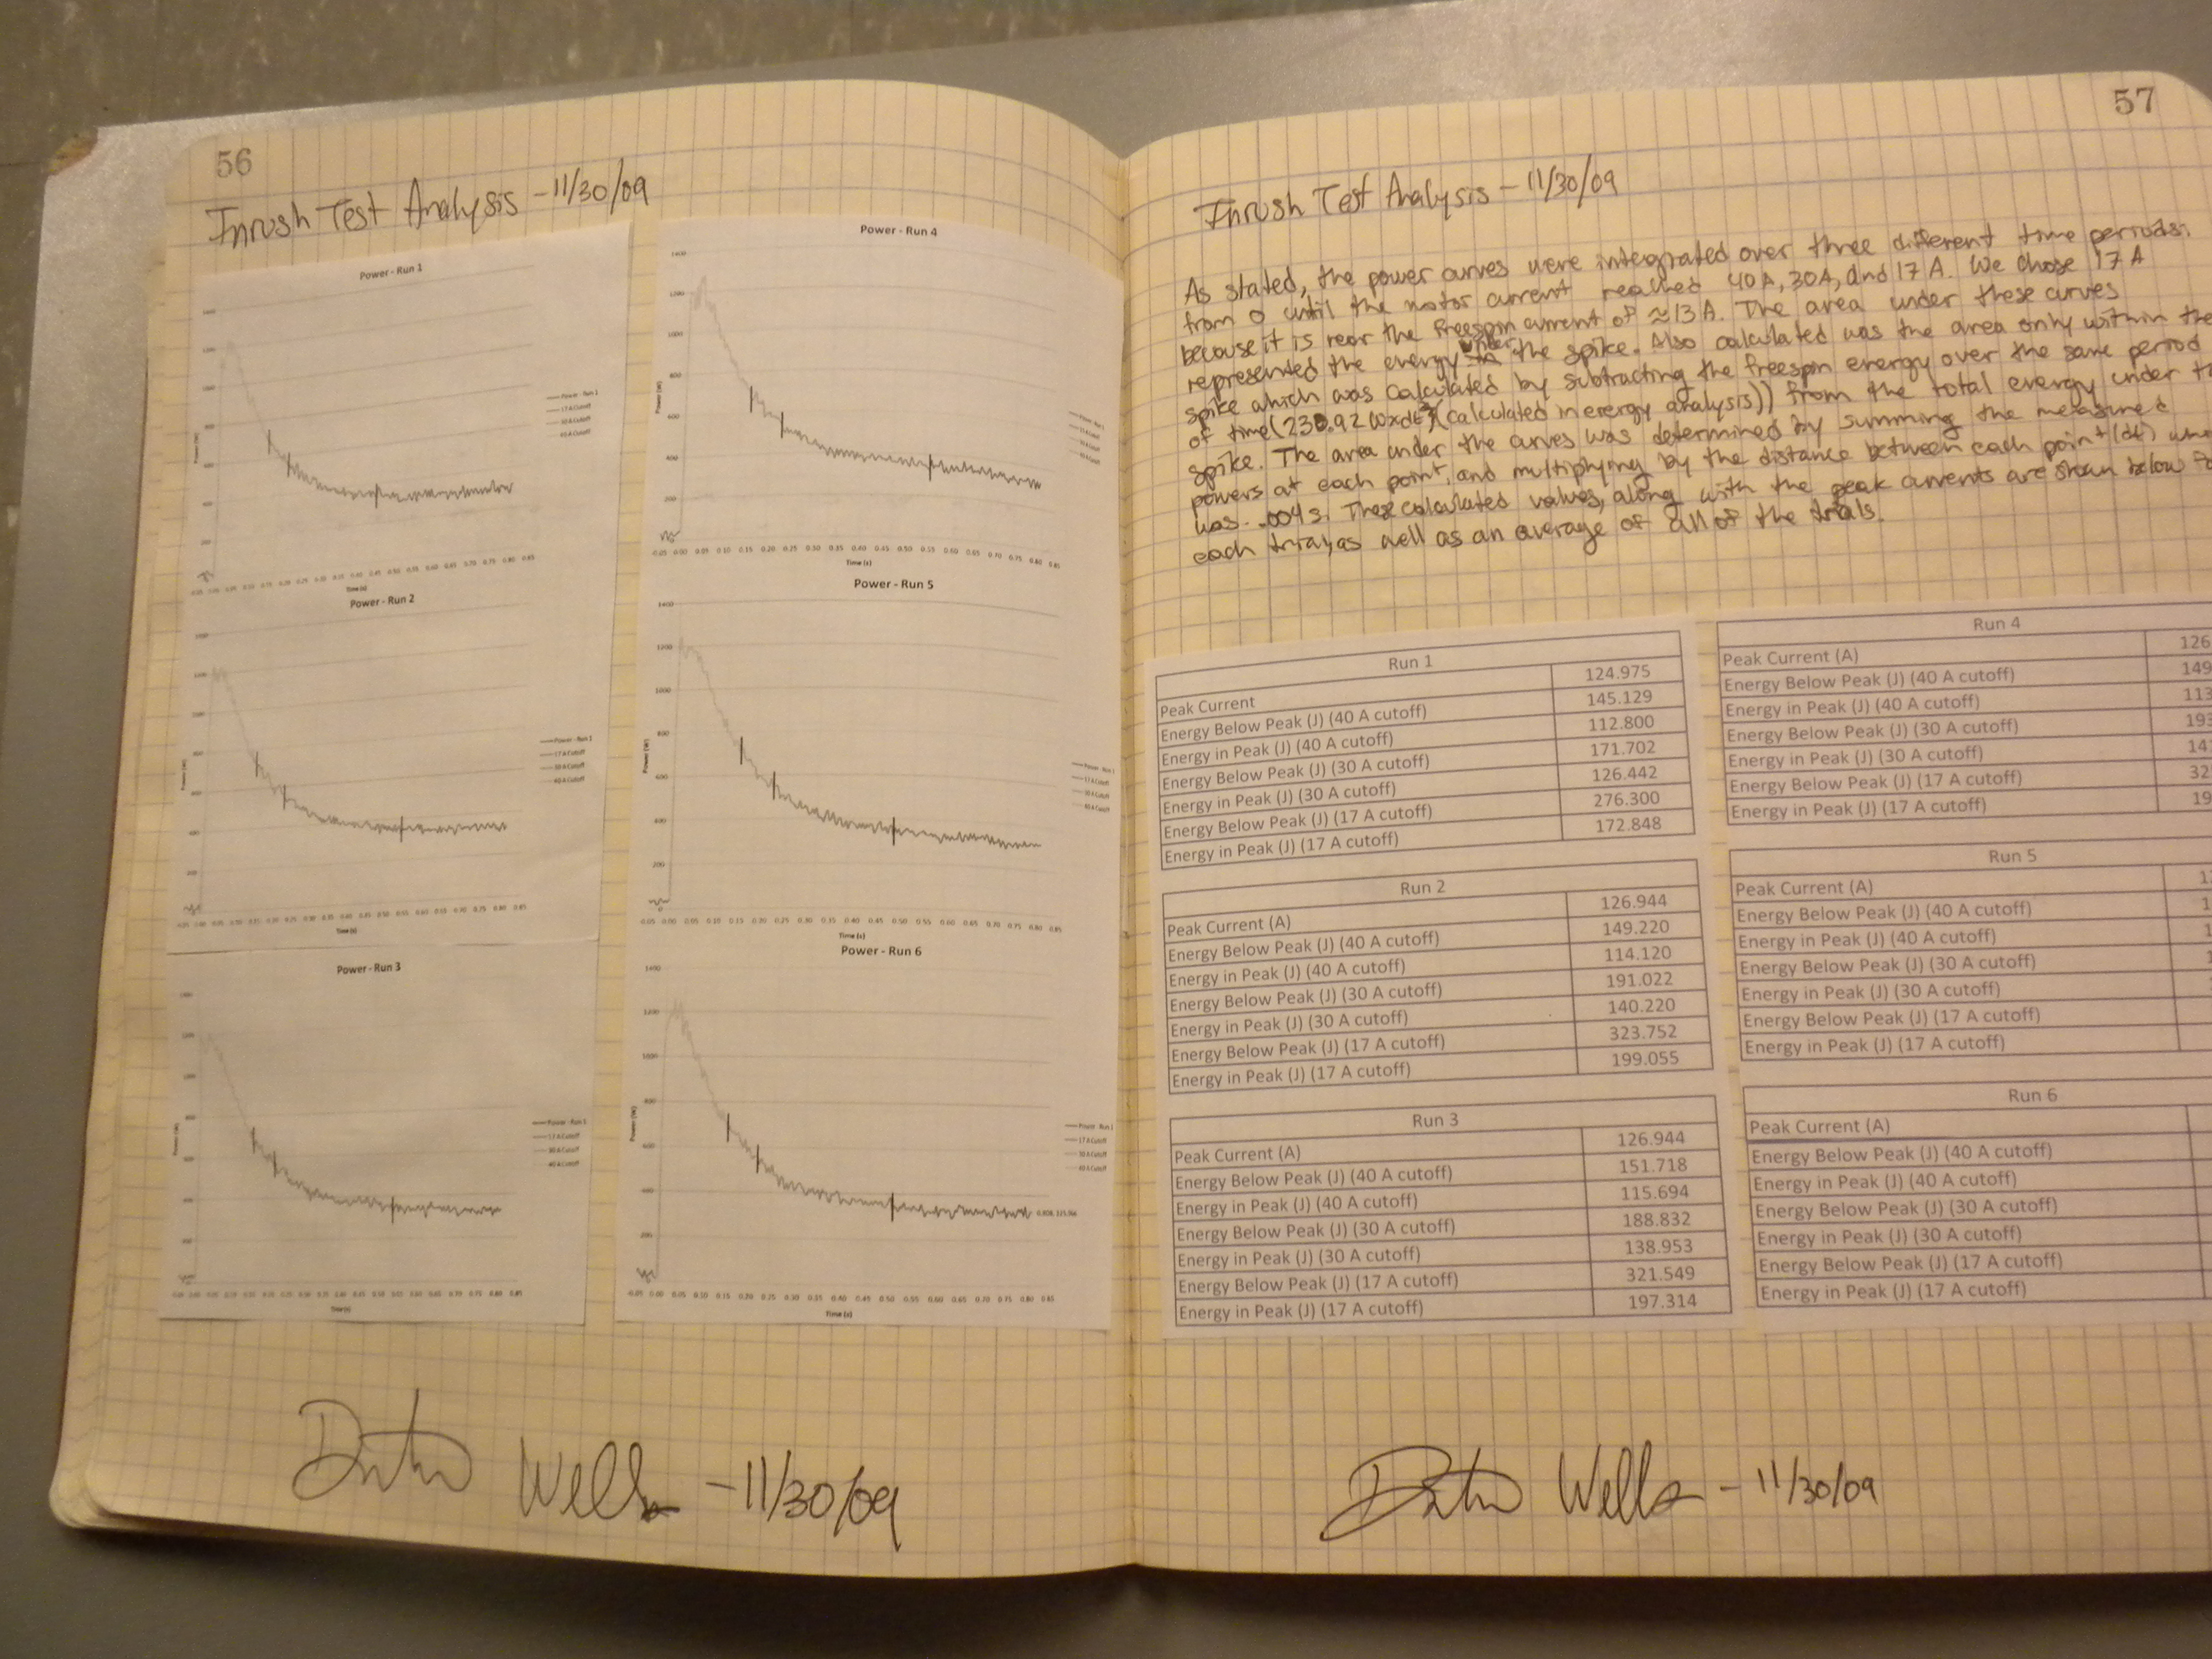 56
Inrush Test Analysis - 11/30/09
Power - Run 1
Power (W)
Time (s)
Power - Run 2
Power (W)
Time (s)
Power - Run 3
Power (W)
Time (s)
Power - Run 4
1400
1200
1000
800
600
400
200
0
Power (W)
-0.05 0.00 0.05 0.10 0.15 0.20 0.25 0.30 0.35 0.40 0.45 0.50 0.55 0.60 0.65 0.70 0.75 0.80 0.85
Time (s)
Power - Run 5
1400
1200
1000
800
600
400
200
0
Power (W)
-0.05 0.00 0.05 0.10 0.15 0.20 0.25 0.30 0.35 0.40 0.45 0.50 0.55 0.60 0.65 0.70 0.75 0.80 0.85
Time (s)
Power - Run 6
1400
1200
1000
800
600
400
200
Power (W)
-0.05 0.00 0.05 0.10 0.15 0.20 0.25 0.30 0.35 0.40 0.45 0.50 0.55 0.60 0.65 0.70 0.75 0.80 0.85
Time (s)
Wells - 11/30/09
57
Inrush Test Analysis - 11/30/09
As stated, the power curves were integrated over three different time periods:
from 0 until the motor current reached 40A, 30A, and 17 A. We chose 17 A
because it is near the freespin current of ≈13 A. The area under these curves
represented the energy under the spike. Also calculated was the area only within the
spike which was calculated by subtracting the freespin energy over the same period
of time (230.92 W×dt (calculated in energy analysis)) from the total energy under
spike. The area under the curves was determined by summing the measured
powers at each point, and multiplying by the distance between each point (dt)
was .004 s. These calculated values, along with the peak currents are shown below
each trial, as well as an average of all of the trials.
Run 1
Peak Current 124.975
Energy Below Peak (J) (40 A cutoff) 145.129
Energy in Peak (J) (40 A cutoff) 112.800
Energy Below Peak (J) (30 A cutoff) 171.702
Energy in Peak (J) (30 A cutoff) 126.442
Energy Below Peak (J) (17 A cutoff) 276.300
Energy in Peak (J) (17 A cutoff) 172.848
Run 2
Peak Current (A) 126.944
Energy Below Peak (J) (40 A cutoff) 149.220
Energy in Peak (J) (40 A cutoff) 114.120
Energy Below Peak (J) (30 A cutoff) 191.022
Energy in Peak (J) (30 A cutoff) 140.220
Energy Below Peak (J) (17 A cutoff) 323.752
Energy in Peak (J) (17 A cutoff) 199.055
Run 3
Peak Current (A) 126.944
Energy Below Peak (J) (40 A cutoff) 151.718
Energy in Peak (J) (40 A cutoff) 115.694
Energy Below Peak (J) (30 A cutoff) 188.832
Energy in Peak (J) (30 A cutoff) 138.953
Energy Below Peak (J) (17 A cutoff) 321.549
Energy in Peak (J) (17 A cutoff) 197.314
Run 4
Peak Current (A) 126
Energy Below Peak (J) (40 A cutoff) 149
Energy in Peak (J) (40 A cutoff) 113
Energy Below Peak (J) (30 A cutoff) 193
Energy in Peak (J) (30 A cutoff) 14
Energy Below Peak (J) (17 A cutoff) 32
Energy in Peak (J) (17 A cutoff) 19
Run 5
Peak Current (A)
Energy Below Peak (J) (40 A cutoff)
Energy in Peak (J) (40 A cutoff)
Energy Below Peak (J) (30 A cutoff)
Energy in Peak (J) (30 A cutoff)
Energy Below Peak (J) (17 A cutoff)
Energy in Peak (J) (17 A cutoff)
Run 6
Peak Current (A)
Energy Below Peak (J) (40 A cutoff)
Energy in Peak (J) (40 A cutoff)
Energy Below Peak (J) (30 A cutoff)
Energy in Peak (J) (30 A cutoff)
Energy Below Peak (J) (17 A cutoff)
Energy in Peak (J) (17 A cutoff)
Wells - 11/30/09